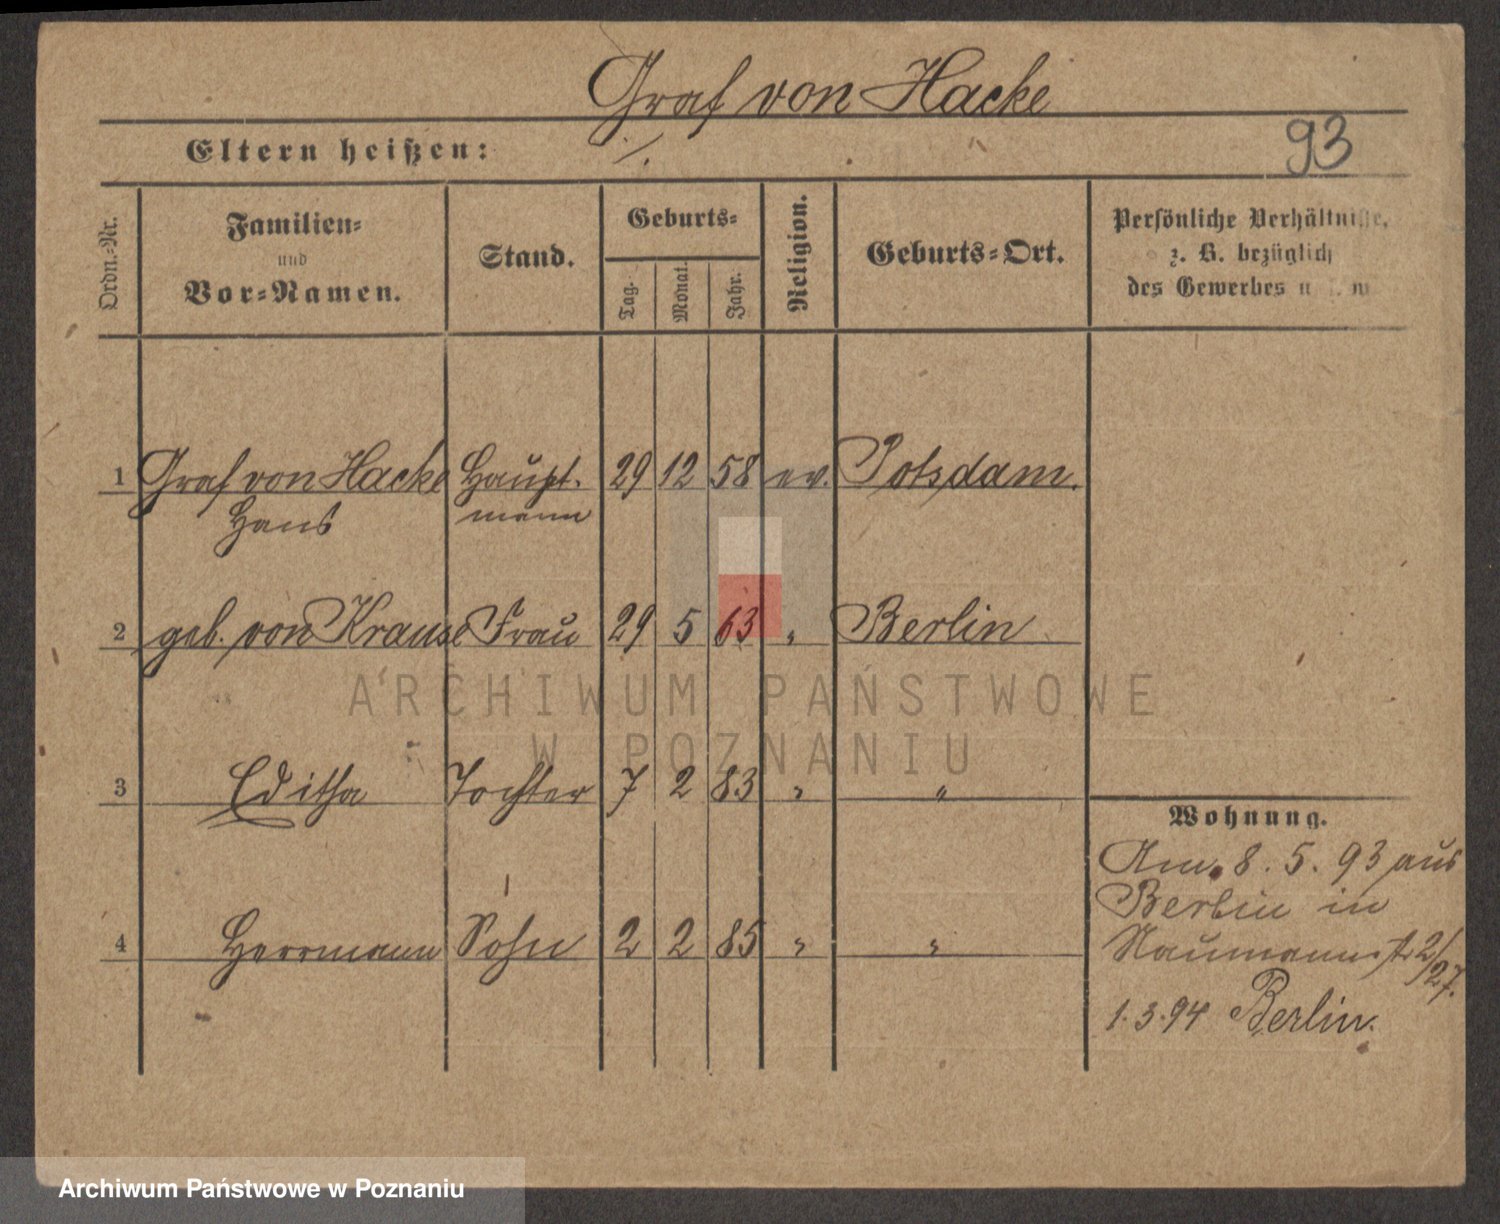 Graf von Hacke
Eltern heißen: ./.
93
Ordn.-Nr.
Familien-
und
Vor-Namen.
Stand.
Geburts-
Tag.
Monat.
Jahr.
Religion.
Geburts-Ort.
Persönliche Verhältnisse,
z. B. bezüglich
des Gewerbes u. s. w
1 Graf von Hacke Haupt- 29 12 58 ev. Potsdam.
Hans mann
2 geb. von Krause Frau 29 5 63 " Berlin
ARCHIWUM PAŃSTWOWE
W POZNANIU
3 Editha Tochter 7 2 83 " "
4 Herrmann Sohn 2 2 85 " "
Wohnung.
Am 8. 5. 93 aus
Berlin in
Naumannstr 2/27.
1.3.94 Berlin.
Archiwum Państwowe w Poznaniu